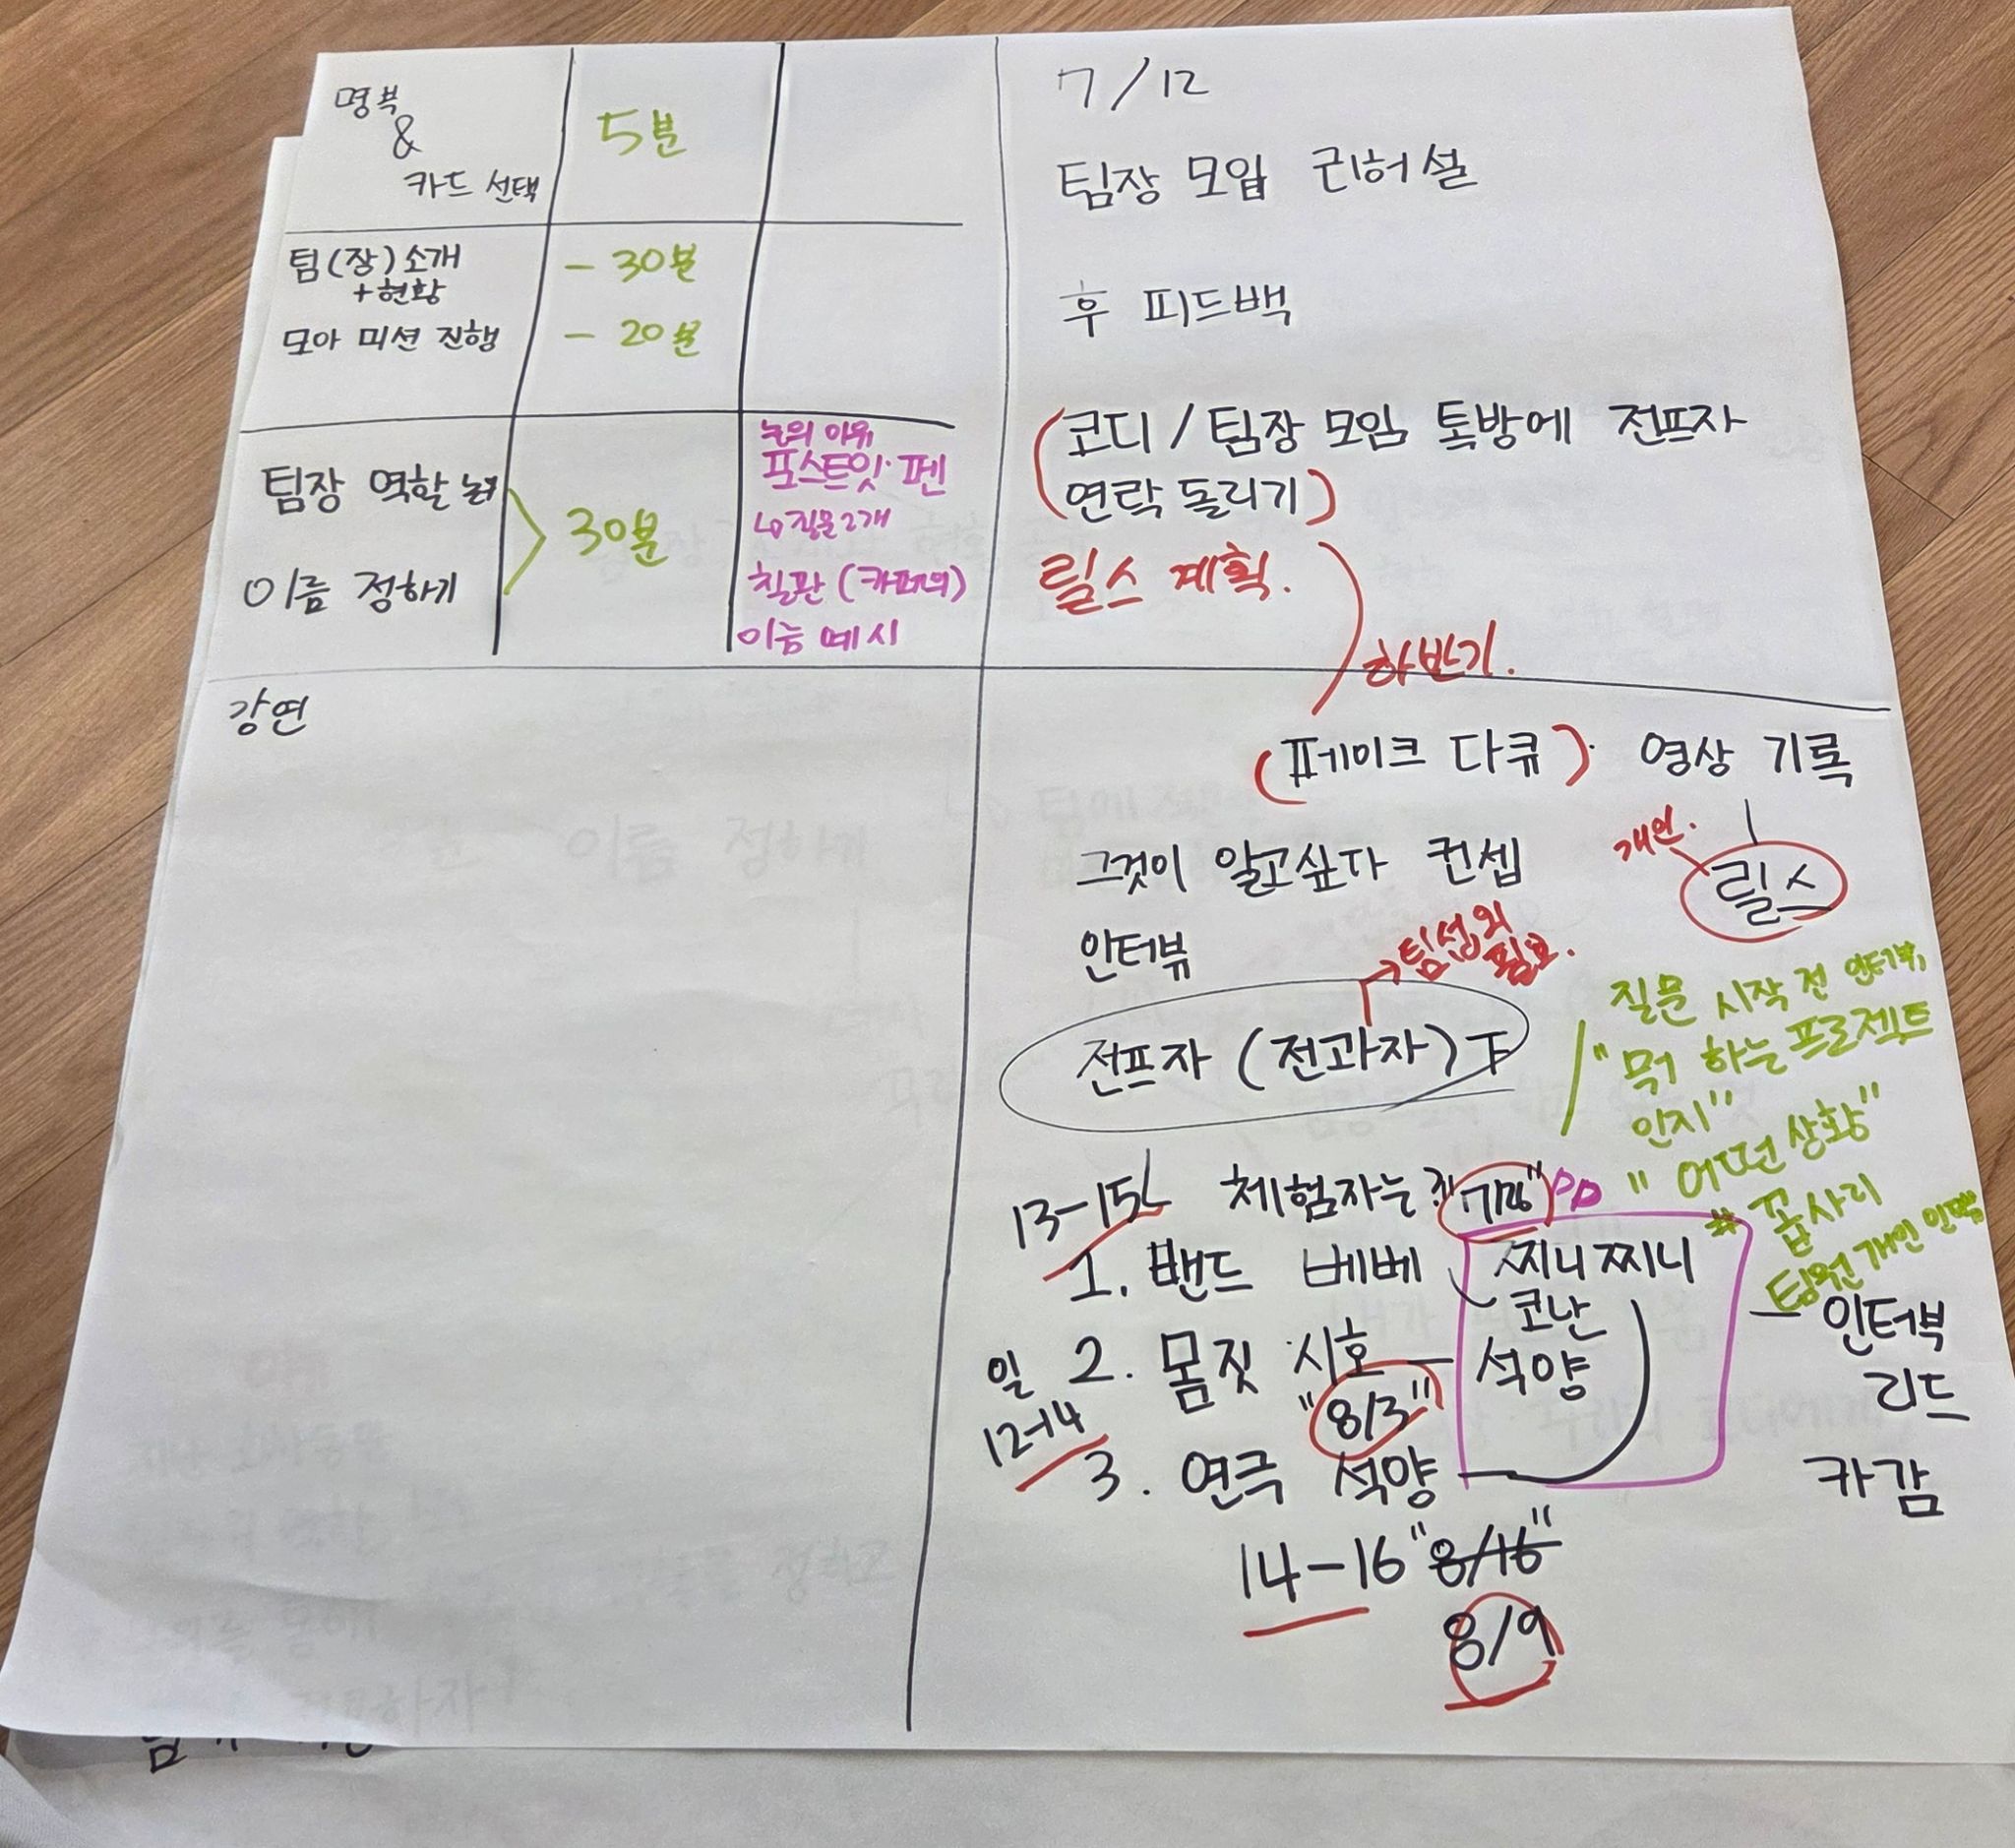 명부
&
카드 선택
5분
팀(장)소개
+현황
- 30분
모아 미션 진행
- 20분
팀장 역할 논의
이름 정하기
30분
포스트잇·펜
↳ 질문2개
칠판 (카페의)
이름 예시
7/12
팀장 모임 리허설
후 피드백
(코디 / 팀장 모임 톡방에 전프자
연락 돌리기)
릴스 계획.
하반기.
강연
(페이크 다큐). 영상 기록
개인.
릴스
그것이 알고싶다 컨셉
인터뷰
→ 팀섭외
필요.
전프자 (전과자)
질문 시작 전 인터뷰,
"뭐 하는 프로젝트
인지"
"어떤 상황"
# 꼽사리
팀원 개인
13-15
체험자는?
"7/26"
PD
1. 밴드 베베
찌니찌니
코난
석양
인터뷰
리드
카감
일 2. 몸짓 시호
"8/3"
12-14
3. 연극 석양
14-16 "8/16"
8/9